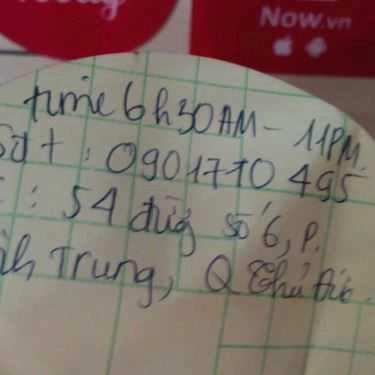 Now.vn
time 6h30AM - 11PM.
Sđt : 0901710 495
: 54 đườg số 6, P.
Trung, Q Thủ Đức.